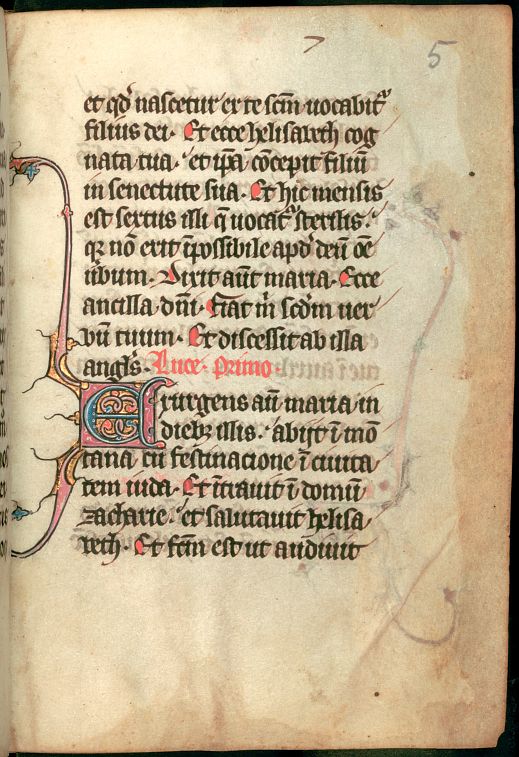 5
et qd̕ nascetur ex te scm̄ uocabitᷣ
filius dei. Et ecce helisabeth cog
nata tua. et ip̄a cōcepit filiū
in senectute sua. Et hic mensis
est sextus illi q̄ uocatᷣ sterilis.
qr nō erit īpossibile apd̕ deū oē
ūbum. Dixit aūt maria. Ecce
ancilla dn̄i. Fiat m̄ scdm̄ uer
bū tuum. Et discessit ab illa
angl̄s. Luce. primo.
Exurgens aū maria in
diebꝫ illis. abijt ī mō
tana cū festinacione ī ciuita
tem iuda. Et ītrauit ī domū
zacharie. et salutauit helisa
beth. Et fcm̄ est ut audiuit